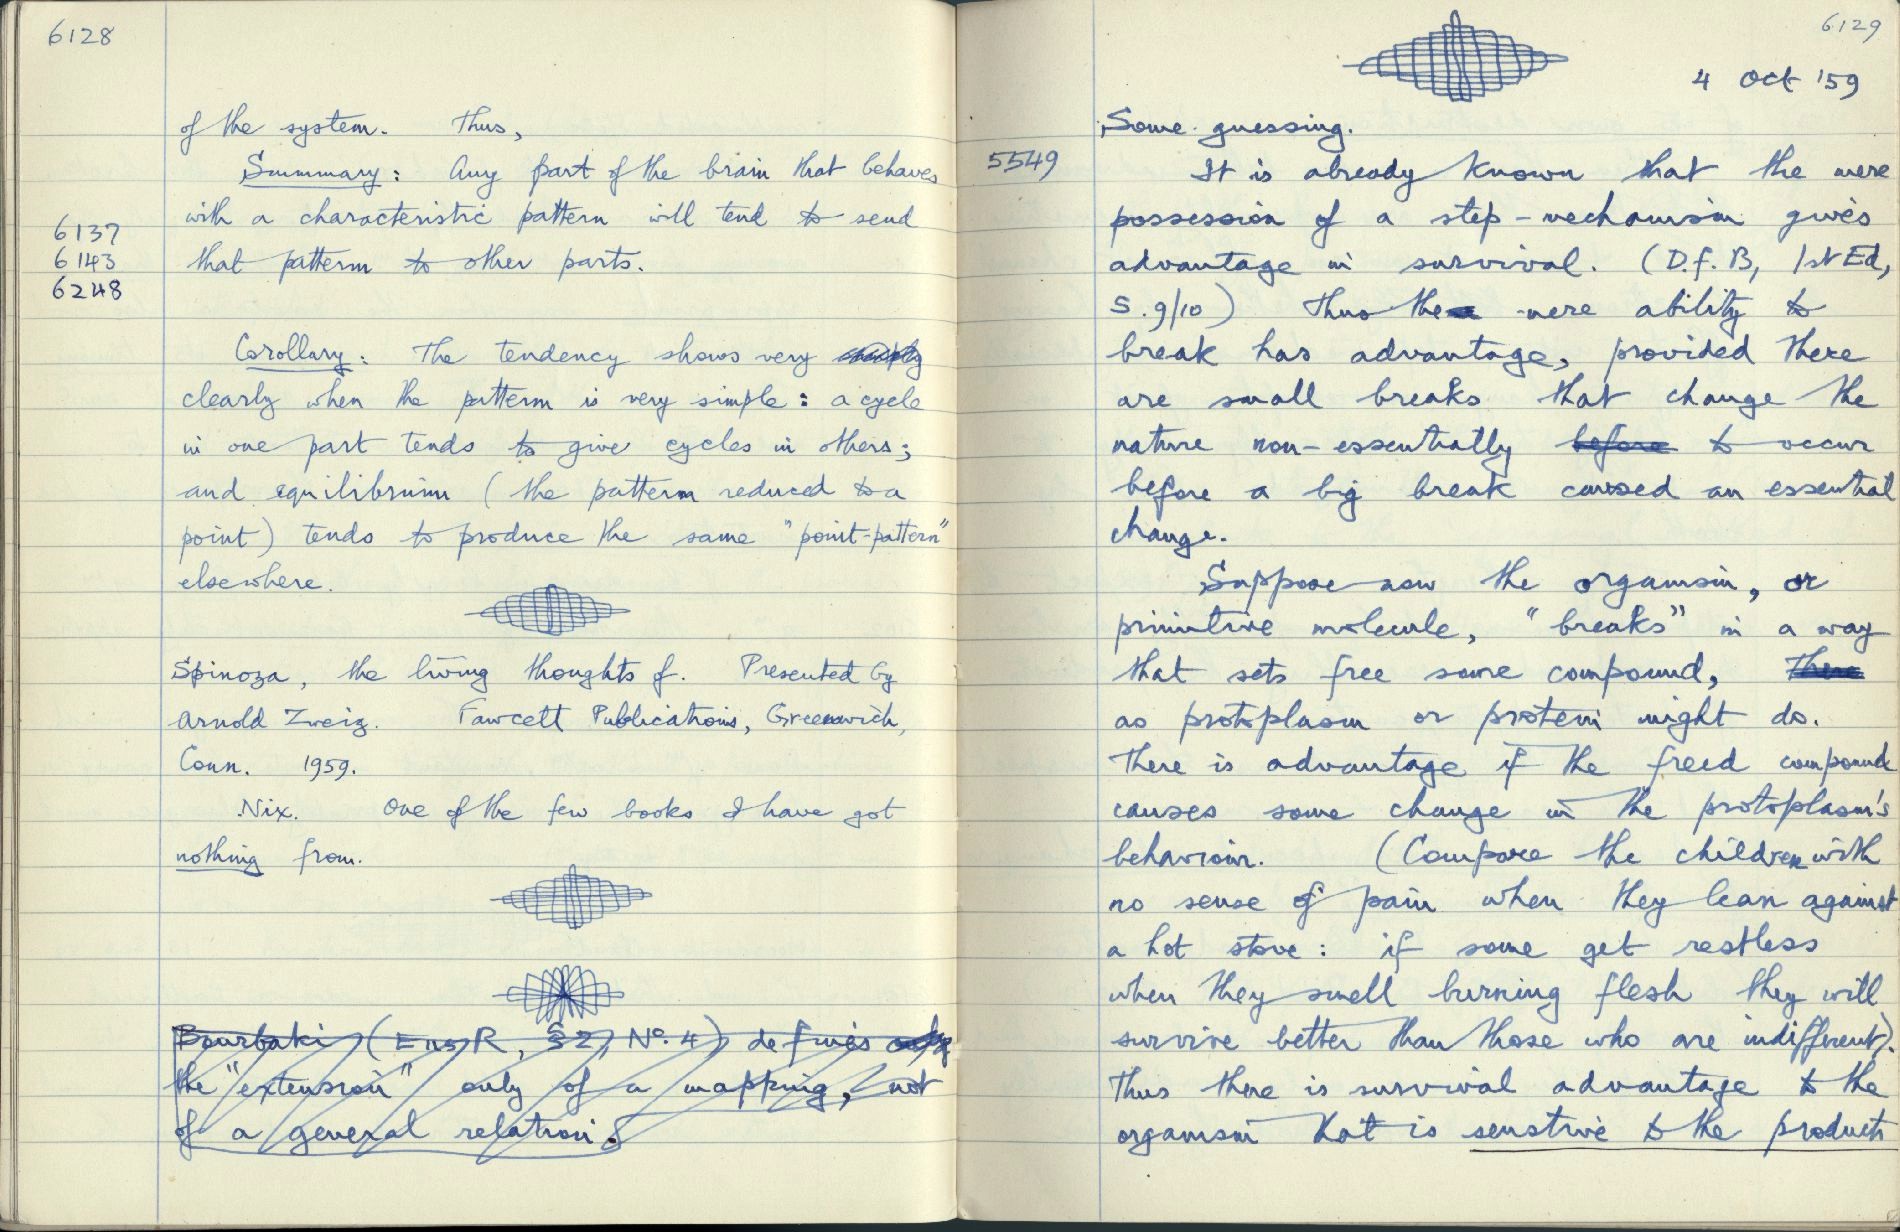 6128
of the system. Thus,
Summary: Any part of the brain that behaves
with a characteristic pattern will tend to send
6137
that pattern to other parts.
6143
6248
Corollary: The tendency shows very
clearly when the pattern is very simple: a cycle
in one part tends to give cycles in others;
and equilibrium (the pattern reduced to a
point) tends to produce the same "point-pattern"
elsewhere.
Spinoza, the living thoughts of. Presented by
Arnold Zweig. Fawcett Publications, Greenwich,
Conn. 1959.
Nix. One of the few books I have got
nothing from.
Bourbaki (Ens R, §2, No. 4) defines only
the "extension" only of a mapping, not
of a general relation.
6129
4 Oct '59
Some guessing.
5549
It is already known that the mere
possession of a step-mechanism gives
advantage in survival. (D.f.B, 1st Ed,
S. 9/10) Thus the mere ability to
break has advantage, provided there
are small breaks that change the
nature non-essentially before to occur
before a big break caused an essential
change.
Suppose now the organism, or
primitive molecule, "breaks" in a way
that sets free some compound, There
as protoplasm or protein might do.
There is advantage if the freed compound
causes some change in the protoplasm's
behaviour. (Compare the children with
no sense of pain when they lean against
a hot stove: if some get restless
when they smell burning flesh they will
survive better than those who are indifferent).
Thus there is survival advantage to the
organism that is sensitive to the products